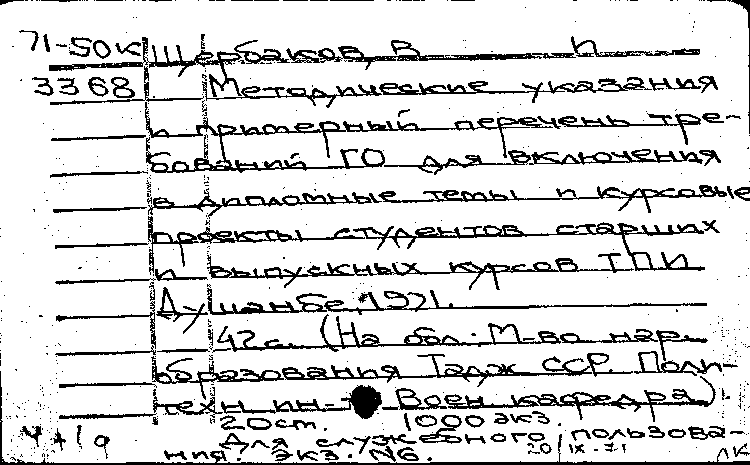 71-50к Щербаков, В П
3368 Методические указания
и примерный перечень тре-
бований ГО для включения
в дипломные темы и курсовые
проекты студентов старших
и выпускных курсов ТПИ
Душанбе, 1971.
42 с. (На обл.: М-во нар.
образования Тадж ССР. Поли-
техн ин-т Воен кафедра).
20 см. 1000 экз.
Для служебного пользова-
ния. Экз. № 6. 20/IX-71 ЛК